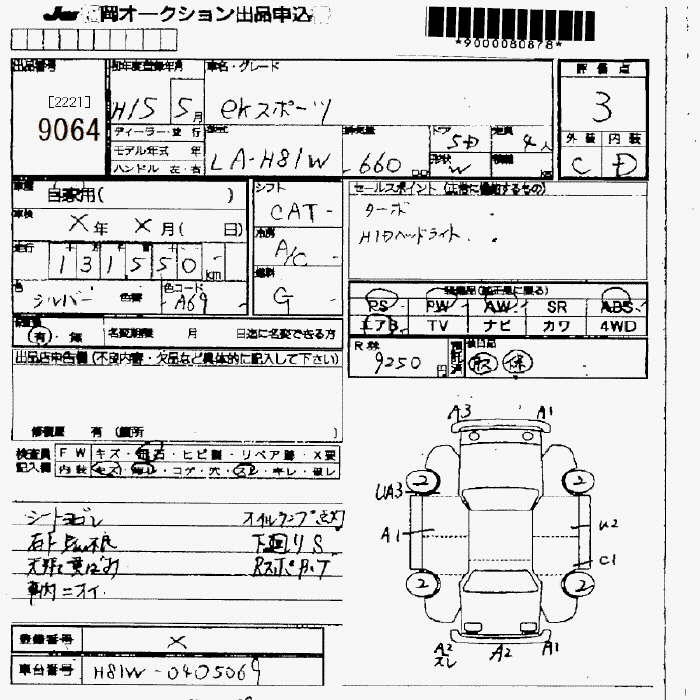 岡オークション出品申込
*9000080878*
出品番号
[2221]
9064
初年度登録年月
H15 5月
車名・グレード
ekスポーツ
評価点
3
外装 内装
C D
ディーラー・並行
モデル年式 年
ハンドル 左・右
型式
LA-H81W
排気量
660
ドア
5D
形状
W
定員
4人
積載
自家用( )
車検
X年 X月( 日)
走行
131550 km
色
シルバー 色替
色コード
A69
シフト
CAT
冷房
A/C
燃料
G
セールスポイント (正常に機能するもの)
ターボ
HIDヘッドライト
装備品(純正品に限る)
PS PW AW SR ABS
エアB TV ナビ カワ 4WD
有・無 名変期限 月 日迄に名変できる方
R券
9250円
預託済
後日品
取 保
出品店申告欄 (不良内容・欠品など具体的に記入して下さい)
修復歴 有 (箇所 )
検査員記入欄
FW キズ・飛石・ヒビ割・リペア跡・X要
内装 キズ・汚レ・コゲ・穴・スレ・キレ・破レ
シートヨゴレ オイルランプ点灯
下回りS
車内ニオイ
登録番号 X
車台番号 H81W-0405069
A3 A1
2 2
UA3
A1 U2
C1
2 2
A2 スレ A2 A1